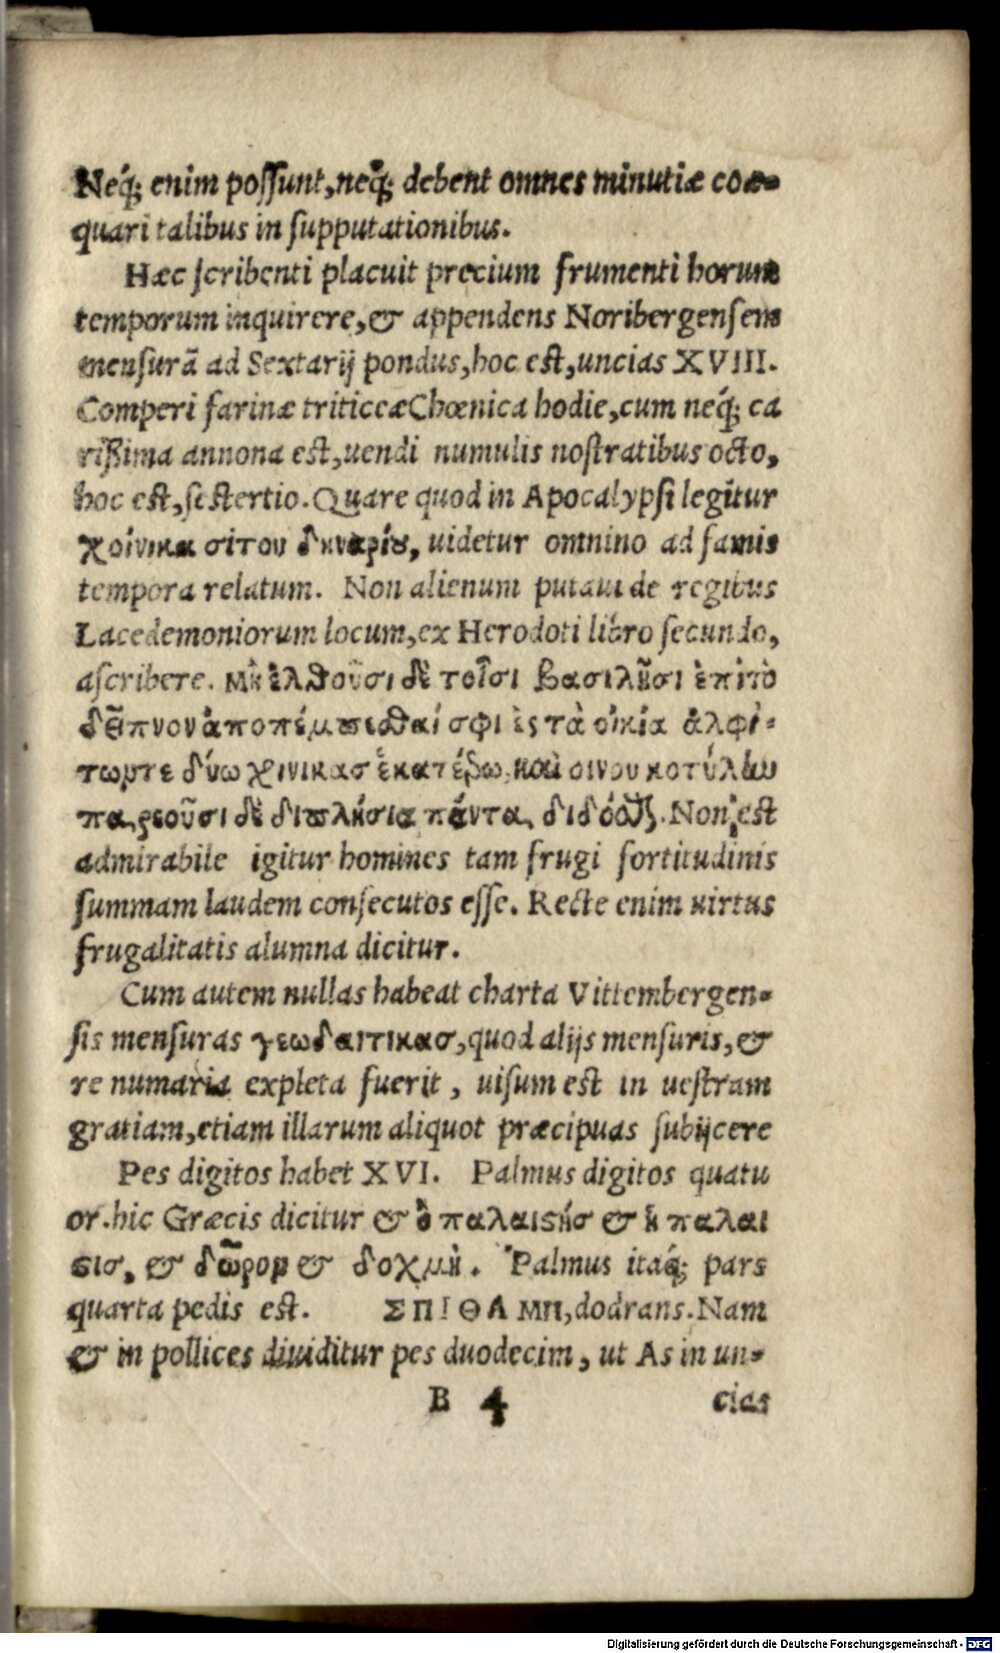 Neq́; enim possunt, neq́; debent omnes minutiæ coæ-
quari talibus in supputationibus.
Hæc scribenti placuit precium frumenti horum
temporum inquirere, & appendens Noribergensem
mensurã ad Sextarij pondus, hoc est, uncias XVIII.
Comperi farinæ triticeæ Chœnica hodie, cum neq́; ca
rißima annona est, uendi numulis nostratibus octo,
hoc est, sestertio. Quare quod in Apocalypsi legitur
χοίνικα σίτου δηναρίου, uidetur omnino ad famis
tempora relatum. Non alienum putaui de regibus
Lacedemoniorum locum, ex Herodoti libro secundo,
ascribere. μὴ ἐλθοῦσι δὲ τοῖσι βασιλεῦσι ἐπὶ τὸ
δεῖπνον ἀποπέμπεσθαί σφι ἐς τὰ οἰκία ἀλφί-
τωμτε δύω χινικασ ἑκατέρω, καὶ οινου κοτύλην
παρεοῦσι δὲ διπλήσια πάντα διδόσθαι. Non est
admirabile igitur homines tam frugi fortitudinis
summam laudem consecutos esse. Recte enim uirtus
frugalitatis alumna dicitur.
Cum autem nullas habeat charta Vittembergen-
sis mensuras γεωδαιτικασ, quod alijs mensuris, &
re numaria expleta fuerit, uisum est in uestram
gratiam, etiam illarum aliquot præcipuas subijcere
Pes digitos habet XVI. Palmus digitos quatu
or. hic Græcis dicitur & ὁ παλαιϛήσ & ἡ παλαι
ϛισ, & δῶρομ & δοχμὴ. Palmus itaq́; pars
quarta pedis est. ΣΠΙΘΑΜΠ, dodrans. Nam
& in pollices diuiditur pes duodecim, ut As in un-
B 4 cias
Digitalisierung gefördert durch die Deutsche Forschungsgemeinschaft - DFG